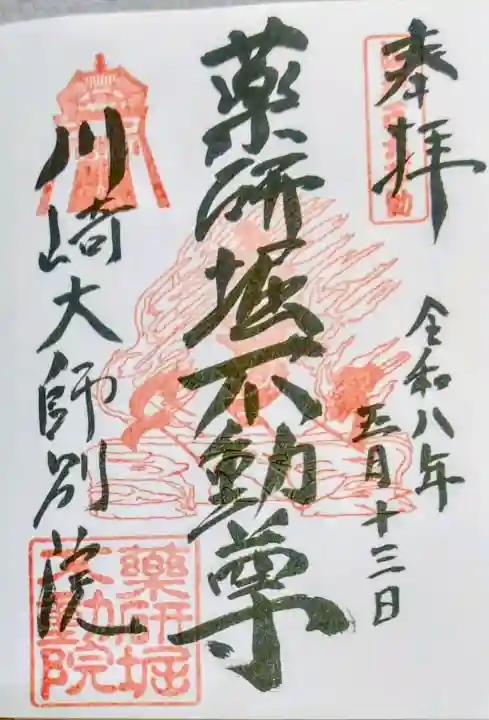 奉拝
令和八年
三月十三日
薬研堀不動尊
川崎大師別院
薬研堀
不動院